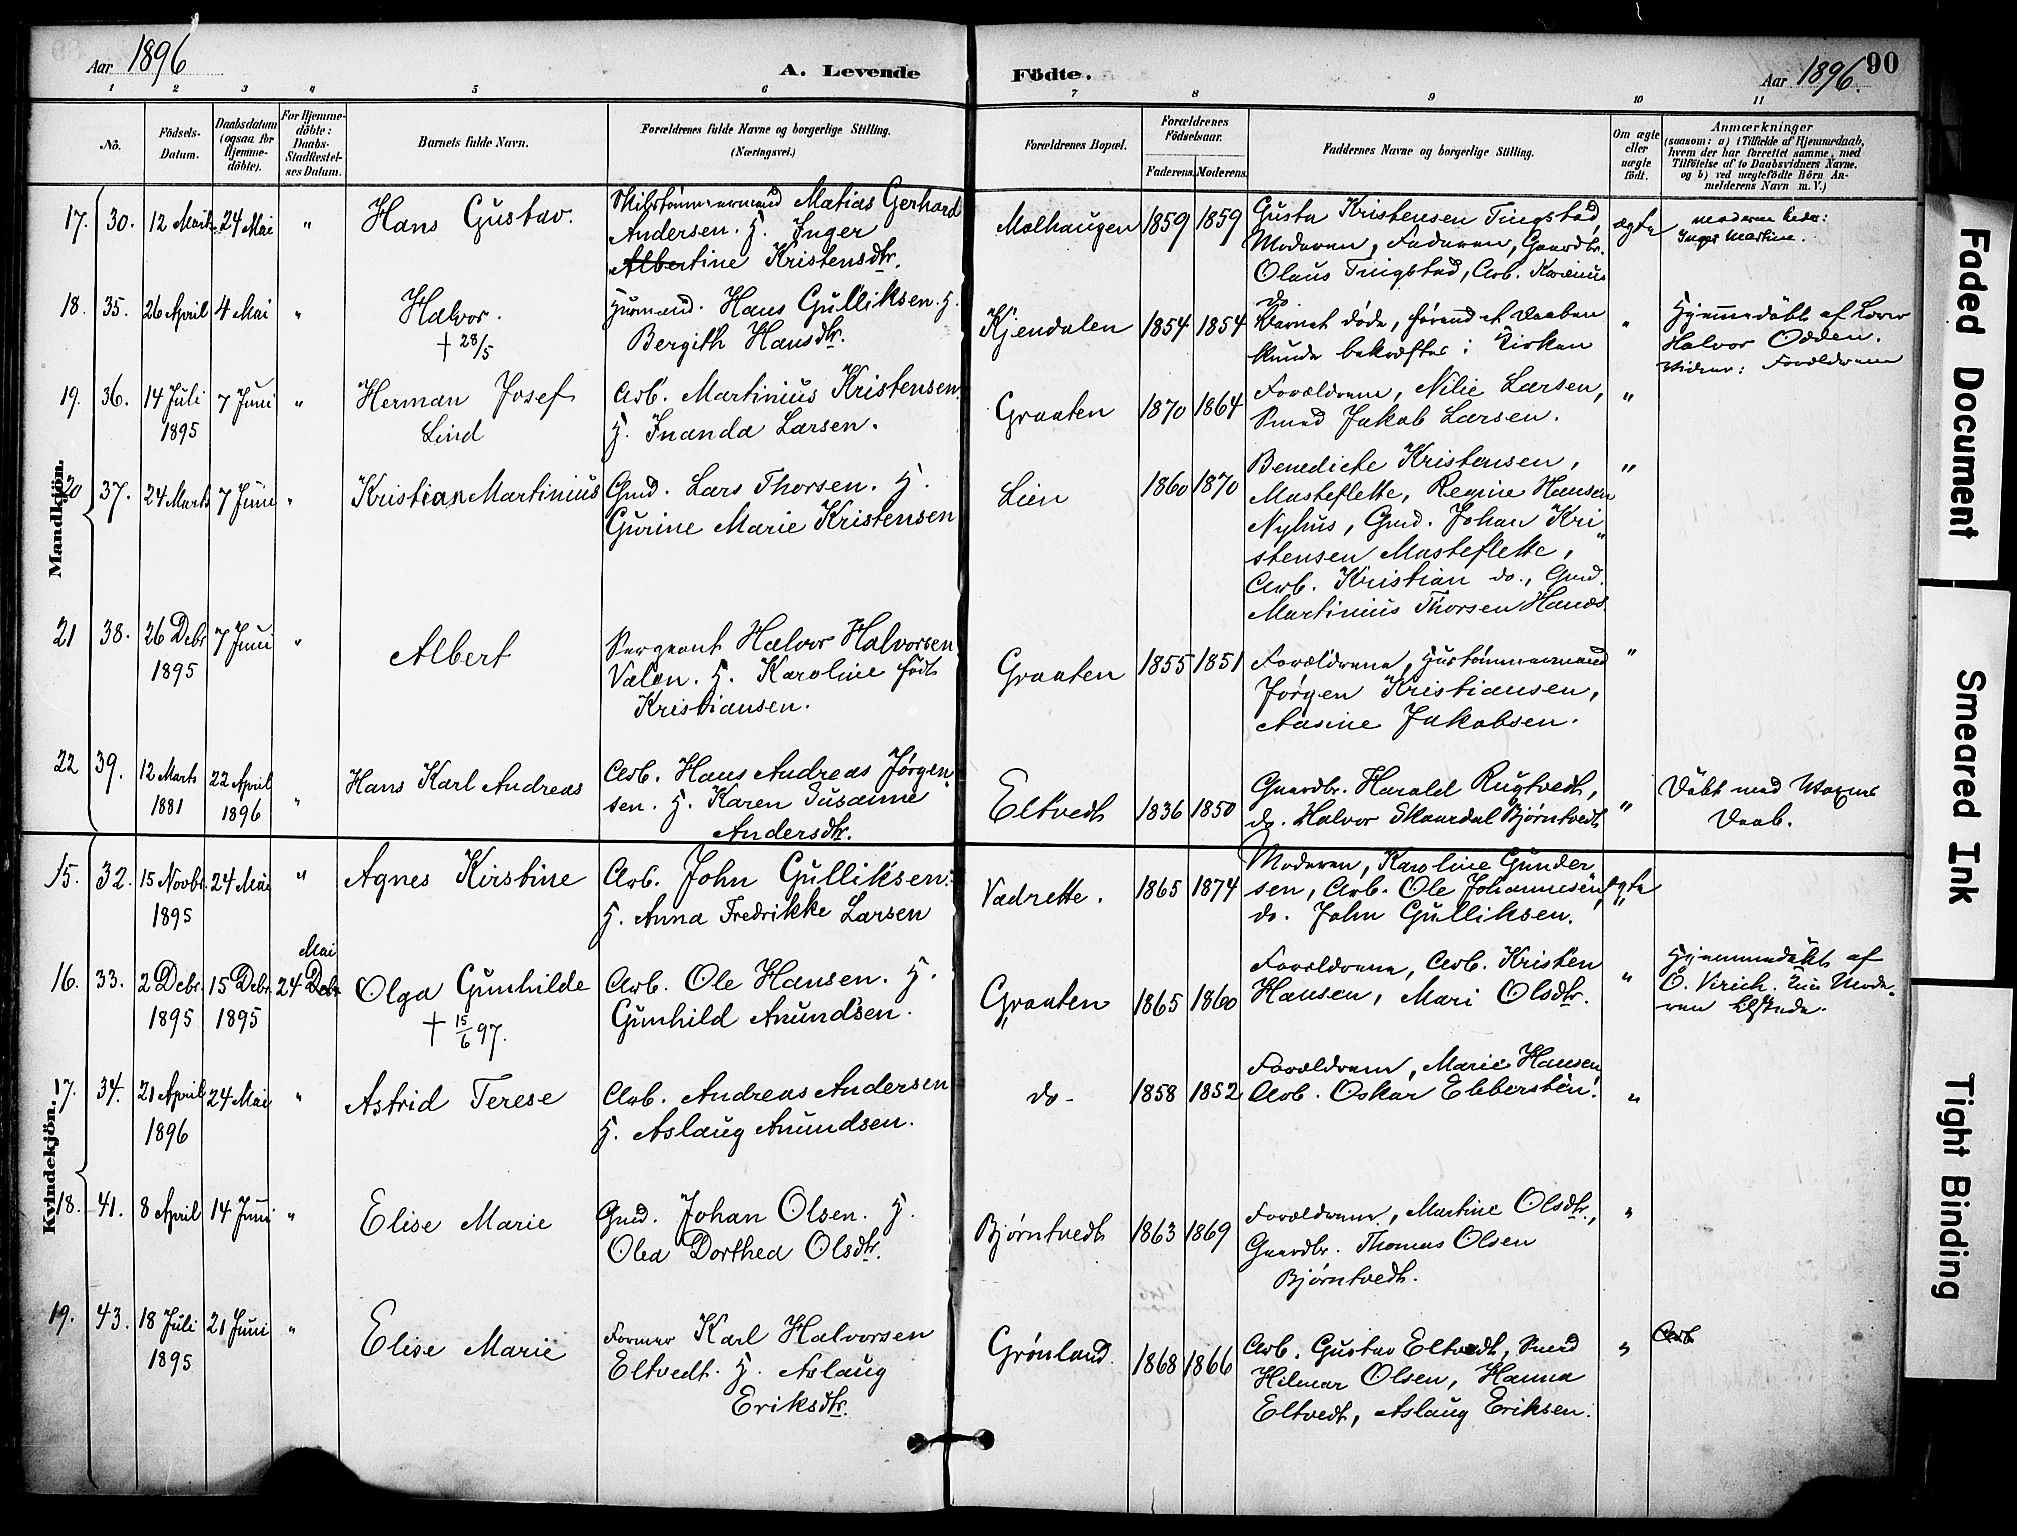 Aar 1896
A. Levende Födte.
Aar 1896.
90
1 2 3 4 5 6 7 8 9 10 11
No.
Födsels-Datum.
Daabsdatum (ogsaa for Hjemme-döbte).
For Hjemme-döbte: Daabs-Stadfæstel-ses Datum.
Barnets fulde Navn.
Forældrenes fulde Navne og borgerlige Stilling.
(Næringsvei.)
Forældrenes Bopæl.
Forældrenes Födselsaar.
Faderens. Moderens.
Faddernes Navne og borgerlige Stilling.
Om ægte eller uægte födt.
Anmærkninger
(saasom: a) i Tilfælde af Hjemmedaab,
hvem der har forrettet samme, med
Tilföielse af to Daabsvidners Navne.
og b) ved uægtefödte Börn An-
melderens Navn m. V.)
Mandkjön.
17. 30. 12 Marts 24 Mai " Hans Gustav.
Matias Gerhard
Andersen. H. Inger
Albertine Kristensdtr.
Molhaugen 1859 1859
Gusta Kristensen Tingstad,
Moderen, Faderen, Gaardbr.
Olaus Tingstad, Arb. Karinius
do
ægte
moderen heder:
Inger Martine.
18. 35. 26 April 4 Mai " Halvor.
† 28/5
Husmand. Hans Gulliksen. H.
Bergith Hansdtr.
Kjendalen 1854 1854
Barnet døde, førend et Daaben
kunde bekræftes i Kirken
"
Hjemmedøbt af Lærer
Halvor Odden.
Vidner: Forældrene
19. 36. 14 Juli 7 Juni "
1895
Herman Josef
Lind
Arb. Martinius Kristensen
H. Inanda Larsen.
Graaten 1870 1864
Forældrene, Nilie Larsen,
Smed Jakob Larsen.
"
20 37. 24 Marts 7 Juni " Kristian Martinius
Gmd. Lars Thorsen. H.
Gurine Marie Kristensen
Lien 1860 1870
Benedicte Kristensen,
Masteflette, Regine Hansen
Nyhus, Gmd. Johan Kri
stensen Masteflette,
Arb. Kristian do., Gmd.
Martinius Thorsen Hanes
"
21 38. 26 Debr 7 Juni "
1895
Albert
Sergeant Halvor Halvorsen
Valen. H. Karoline født
Kristiansen.
Graaten 1855 1851
Forældrene, Hustømmermand
Jørgen Kristiansen,
Aasine Jakobsen.
"
22 39. 12 Marts 22 April "
1881 1896
Hans Karl Andreas
Arb. Hans Andreas Jørgen-
sen. H. Karen Susanne
Andersdtr.
Eltvedt 1836 1850
Gaardbr. Harald Rugtvedt,
do. Halvor Skaardal Bjørntvedt
"
Døbt med Voxnes
Daab.
Kvindekjön.
15. 32. 15 Novbr 24 Mai "
1895
Agnes Kirstine
Arb. John Gulliksen.
H. Anna Fredrikke Larsen
Vadrette. 1865 1874
Moderen, Karoline Gunder-
sen, Arb. Ole Johannesen,
do. John Gulliksen.
ægte
16. 33. 2 Debr. 15 Debr. 24 Mai Debr
1895 1895
Olga Gunhilde
† 15/6 97.
Arb. Ole Hansen. H.
Gunhild Anundsen.
Graaten 1865 1860
Forældrene, Arb. Kristen
Hansen, Mari Olsdtr.
"
Hjemmedøbt af
O. Virich. Kun Mode-
ren tilstede.
17. 34. 21 April 24 Mai "
1896
Astrid Terese
Arb. Andreas Andersen
H. Aslaug Anundsen.
do- 1858 1852
Forældrene, Marie Hansen,
Arb. Oskar Ebbersten.
"
18. 41. 8 April 14 Juni " Elise Marie
Gmd. Johan Olsen. H.
Olea Dorthea Olsdtr.
Bjørntvedt 1863 1869
Forældrene, Martine Olsdtr.,
Gaardbr. Thomas Olsen
Bjørntvedt.
"
19. 43. 18 Juli 21 Juni "
1895
Elise Marie
Former Karl Halvorsen
Eltvedt. H. Aslaug
Eriksdtr.
Grønland. 1868 1866
Arb. Gustav Eltvedt, Smed
Hilmar Olsen, Hanna
Eltvedt, Aslaug Eriksen.
"
Arb
Faded Document
Smeared Ink
Tight Binding